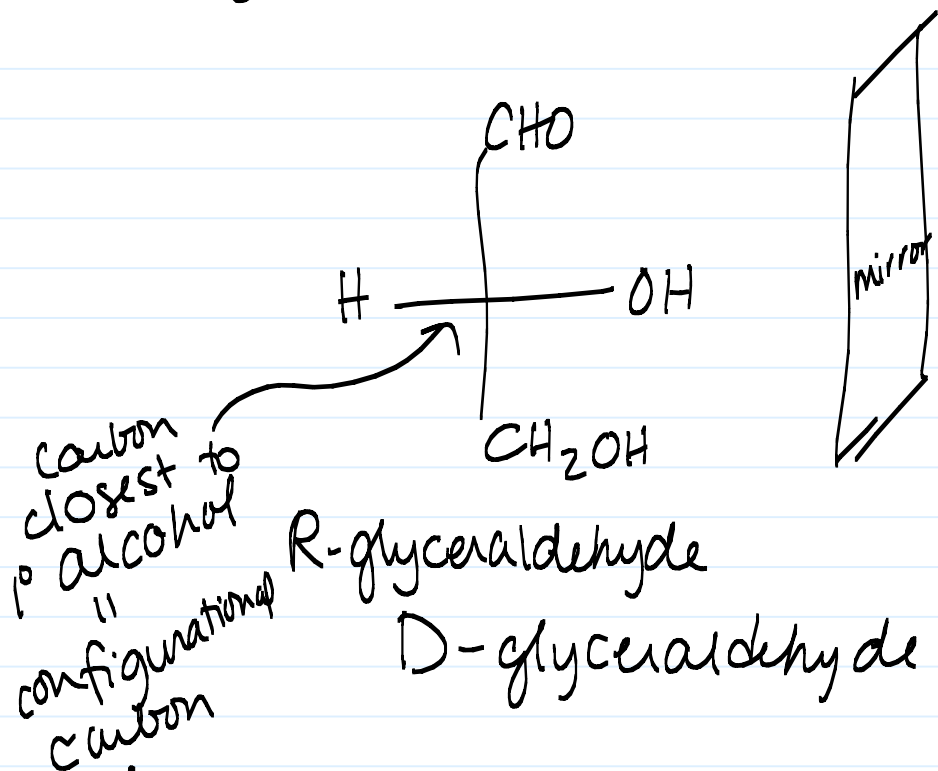 CHO
H
OH
mirror
CH2OH
carbon
closest to
1° alcohol
=
configurational
carbon
R-glyceraldehyde
D-glyceraldehyde